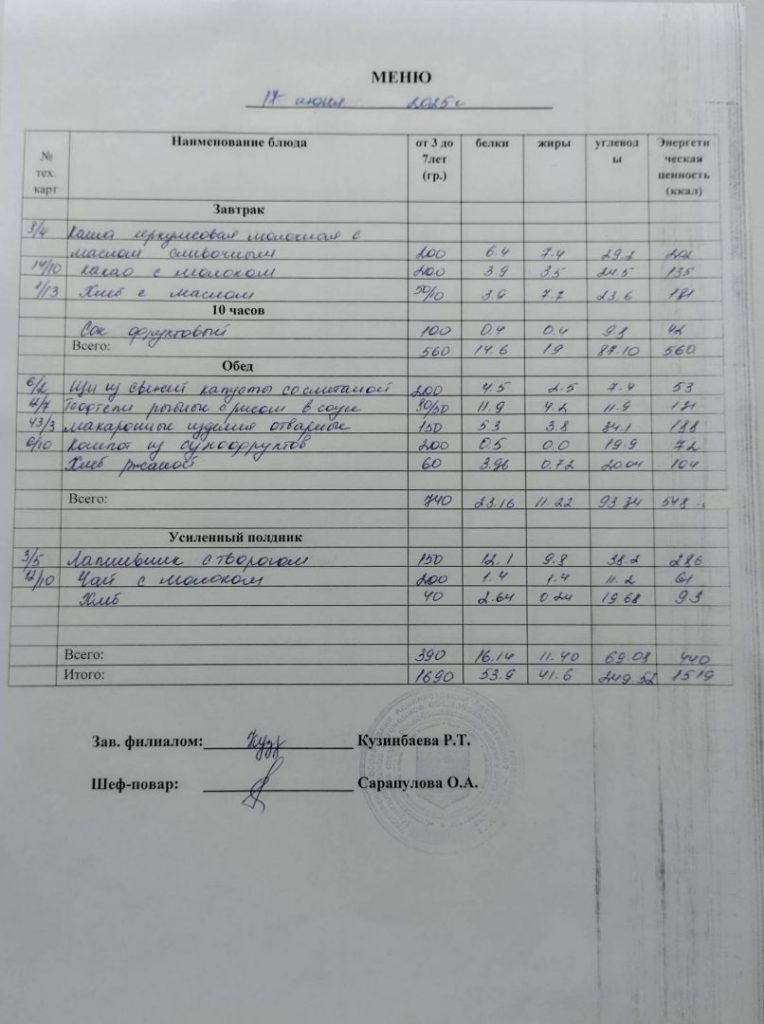 МЕНЮ
17 июня 2025 г
№ тех. карт Наименование блюда от 3 до 7лет (гр.) белки жиры углевод ы Энергети ческая ценность (ккал)
Завтрак
3/4 Каша геркулесовая молочная с
маслом сливочным 200 6.4 7.4 29.2 202
14/10 Какао с молоком 200 3.9 3.5 24.5 135
1/13 Хлеб с маслом 50/10 3.9 7.7 23.6 181
10 часов
Сок фруктовый 100 0.4 0.4 9.8 42
Всего: 560 14.6 19 87.10 560
Обед
6/2 Щи из свежей капусты со сметаной 200 4.5 2.5 7.4 53
12/7 Тефтели рыбные с рисом в соусе 80/50 11.9 4.2 11.9 131
43/3 Макаронные изделия отварные 150 5.3 3.8 34.1 188
6/10 Компот из сухофруктов 200 0.5 0.0 19.9 72
Хлеб ржаной 60 3.96 0.72 20.04 104
Всего: 740 23.16 11.22 93.34 548
Усиленный полдник
3/5 Лапшевник с творогом 150 12.1 9.8 38.2 286
12/10 Чай с молоком 200 1.4 1.4 11.2 61
Хлеб 40 2.64 0.24 19.68 93
Всего: 390 16.14 11.40 69.08 440
Итого: 1690 53.9 41.6 249.52 1519
Зав. филиалом: Кузинбаева Р.Т.
Шеф-повар: Сарапулова О.А.